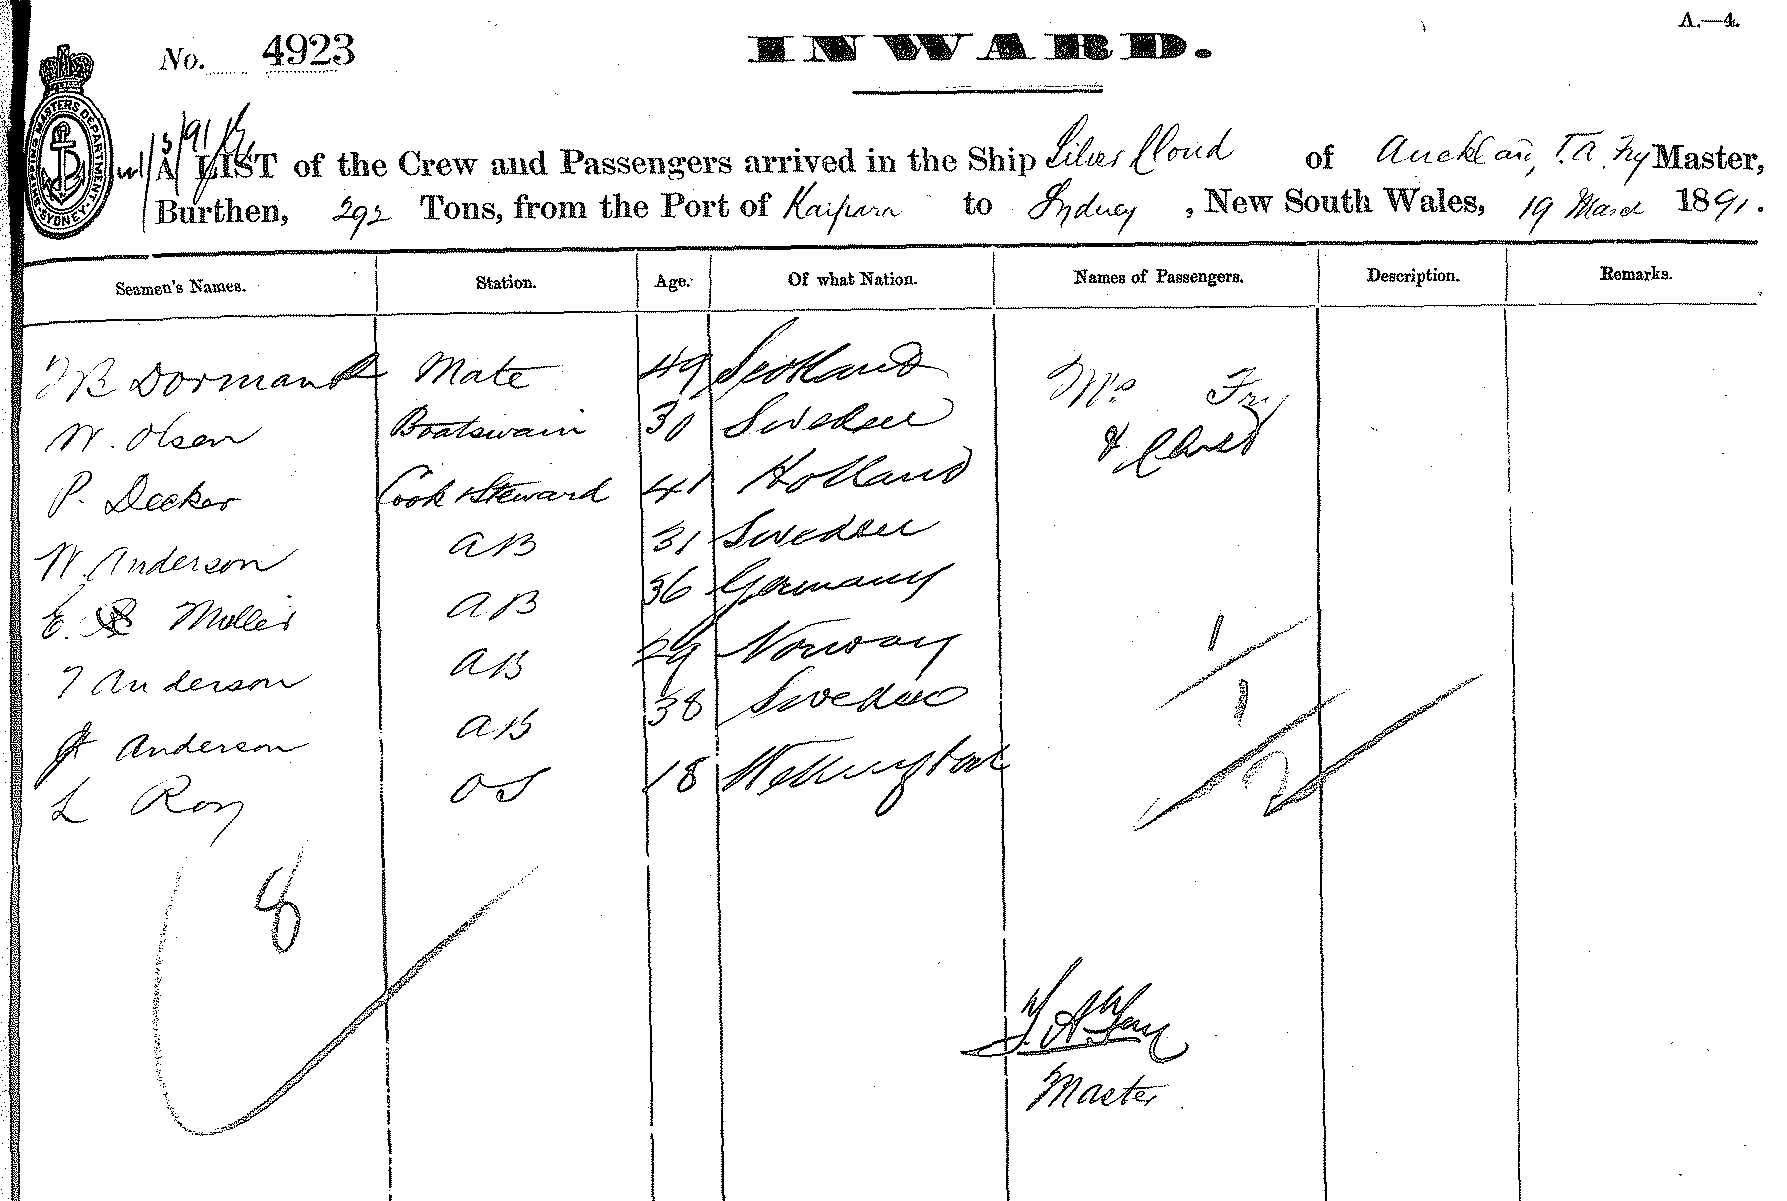 A.—4.
No. 4923
INWARD.
SHIPPING MASTERS DEPARTMENT SYDNEY
A LIST of the Crew and Passengers arrived in the Ship Silver Cloud of Auckland, T. A. Fry Master,
Burthen, 292 Tons, from the Port of Kaipara to Sydney, New South Wales, 19 March 1891.
Seamen's Names. Station. Age. Of what Nation. Names of Passengers. Description. Remarks.
B Dormand Mate 49 Scotland Mrs Fry
W. Olsen Boatswain 30 Sweden & Child
P. Decker Cook & Steward 41 Holland
W. Anderson AB 31 Sweden
E. Moller AB 36 Germany
T Anderson AB 29 Norway
Anderson AB 38 Sweden
L Roy OS 18
1
1
2
8
T. A. Fry
Master